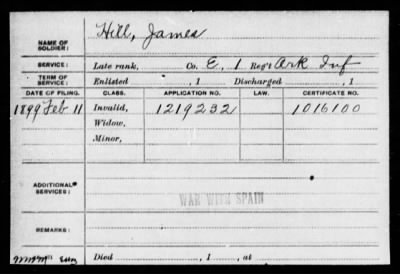 NAME OF SOLDIER: Hill, James
SERVICE: Late rank, Co. E, 1 Reg't Ark Inf
TERM OF SERVICE: Enlisted , 1 Discharged , 1
DATE OF FILING. CLASS. APPLICATION NO. LAW. CERTIFICATE NO.
1899 Feb 11 Invalid, 1219232 1016100
Widow,
Minor,
ADDITIONAL SERVICES:
WAR WITH SPAIN
REMARKS:
Died , 1 , at